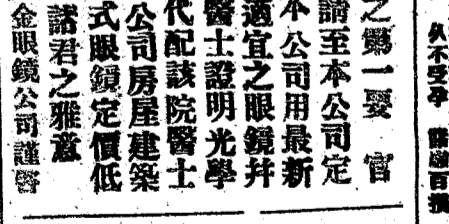 久不受孕
之第一要 官
請至本公司定
本公司用最新
適宜之眼鏡幷
醫士證明光學
代配該院醫士
公司房屋建築
式眼鏡定價低
諸君之雅意
金眼鏡公司謹啓